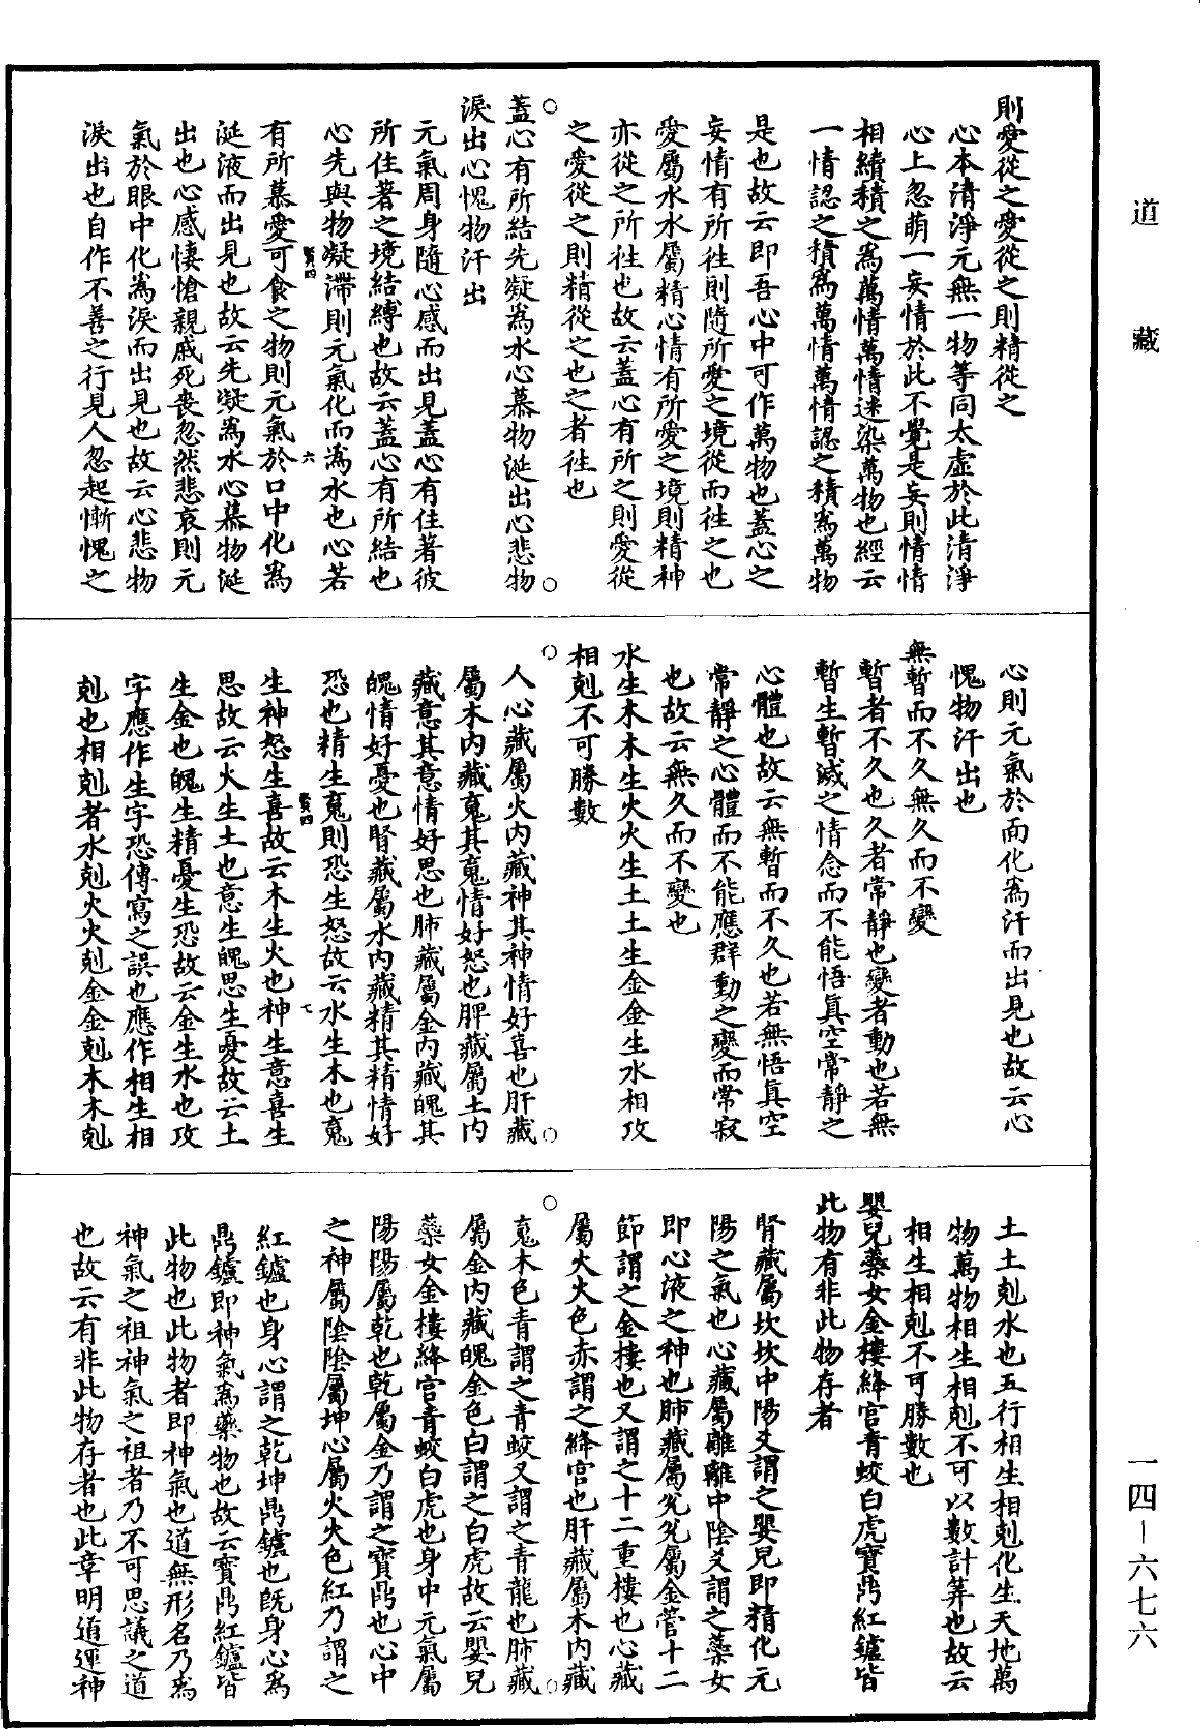 道藏
一四—六七六
則愛從之愛從之則精從之
心本清淨元無一物等同太虛於此清淨
心上忽萌一妄情於此不覺是妄則情情
相續積之爲萬情萬情迷染萬物也經云
一情認之積爲萬情萬情認之積爲萬物
是也故云即吾心中可作萬物也蓋心之
妄情有所往則隨所愛之境從而往之也
愛屬水水屬精心情有所愛之境則精神
亦從之所往也故云蓋心有所之則愛從
之愛從之則精從之也之者往也
蓋心有所結先凝爲水心慕物涎出心悲物
淚出心愧物汗出
元氣周身隨心感而出見蓋心有住著彼
所住著之境結縛也故云蓋心有所結也
心先與物凝滯則元氣化而爲水也心若
賢四 六
有所慕愛可食之物則元氣於口中化爲
涎液而出見也故云先凝爲水心慕物涎
出也心感悽愴親戚死喪忽然悲哀則元
氣於眼中化爲淚而出見也故云心悲物
淚出也自作不善之行見人忽起慚愧之
心則元氣於面化爲汗而出見也故云心
愧物汗出也
無暫而不久無久而不變
暫者不久也久者常靜也變者動也若無
暫生暫滅之情念而不能悟真空常靜之
心體也故云無暫而不久也若無悟真空
常靜之心體而不能應群動之變而常寂
也故云無久而不變也
水生木木生火火生土土生金金生水相攻
相剋不可勝數
人心藏屬火內藏神其神情好喜也肝藏
屬木內藏䰟其䰟情好怒也脾藏屬土內
藏意其意情好思也肺藏屬金內藏魄其
魄情好憂也腎藏屬水內藏精其精情好
恐也精生䰟則恐生怒故云水生木也䰟
賢四 七
生神怒生喜故云木生火也神生意喜生
思故云火生土也意生魄思生憂故云土
生金也魄生精憂生恐故云金生水也攻
字應作生字恐傳寫之誤也應作相生相
剋也相剋者水剋火火剋金金剋木木剋
土土剋水也五行相生相剋化生天地萬
物萬物相生相剋不可以數計筭也故云
相生相剋不可勝數也
嬰兒蘂女金樓絳宮青蛟白虎寶鼎紅鑪皆
此物有非此物存者
腎藏屬坎坎中陽爻謂之嬰兒即精化元
陽之氣也心藏屬離離中陰爻謂之蘂女
即心液之神也肺藏屬兊兊屬金管十二
節謂之金樓也又謂之十二重樓也心藏
屬火火色赤謂之絳宮也肝藏屬木內藏
䰟木色青謂之青蛟又謂之青龍也肺藏
屬金內藏魄金色白謂之白虎故云嬰兒
蘂女金樓絳宮青蛟白虎也身中元氣屬
陽陽屬乾也乾屬金乃謂之寶鼎也心中
之神屬陰陰屬坤心屬火火色紅乃謂之
紅鑪也身心謂之乾坤鼎鑪也既身心爲
鼎鑪即神氣爲藥物也故云寶鼎紅鑪皆
此物也此物者即神氣也道無形名乃爲
神氣之祖神氣之祖者乃不可思議之道
也故云有非此物存者也此章明道運神